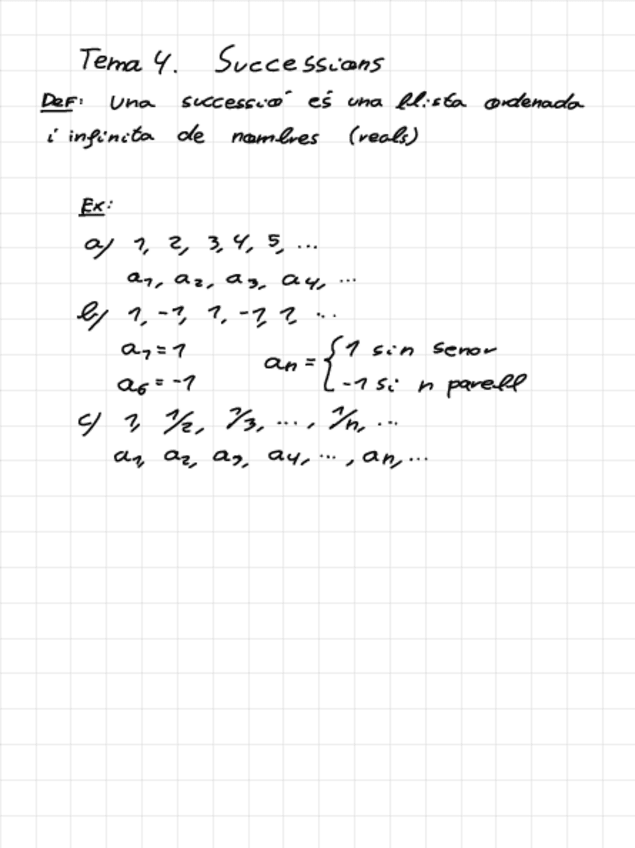 Tema 4. Successions
DEF: Una successió és una llista ordenada
i infinita de nombres (reals)
Ex:
a) 1, 2, 3, 4, 5, ...
a₁, a₂, a₃, a₄, ...
b) 1, -1, 1, -1, 1, ...
a₁ = 1
a₆ = -1
aₙ = { 1 si n senar
-1 si n parell
c) 1, 1/2, 1/3, ..., 1/n, ...
a₁, a₂, a₃, a₄, ..., aₙ, ...